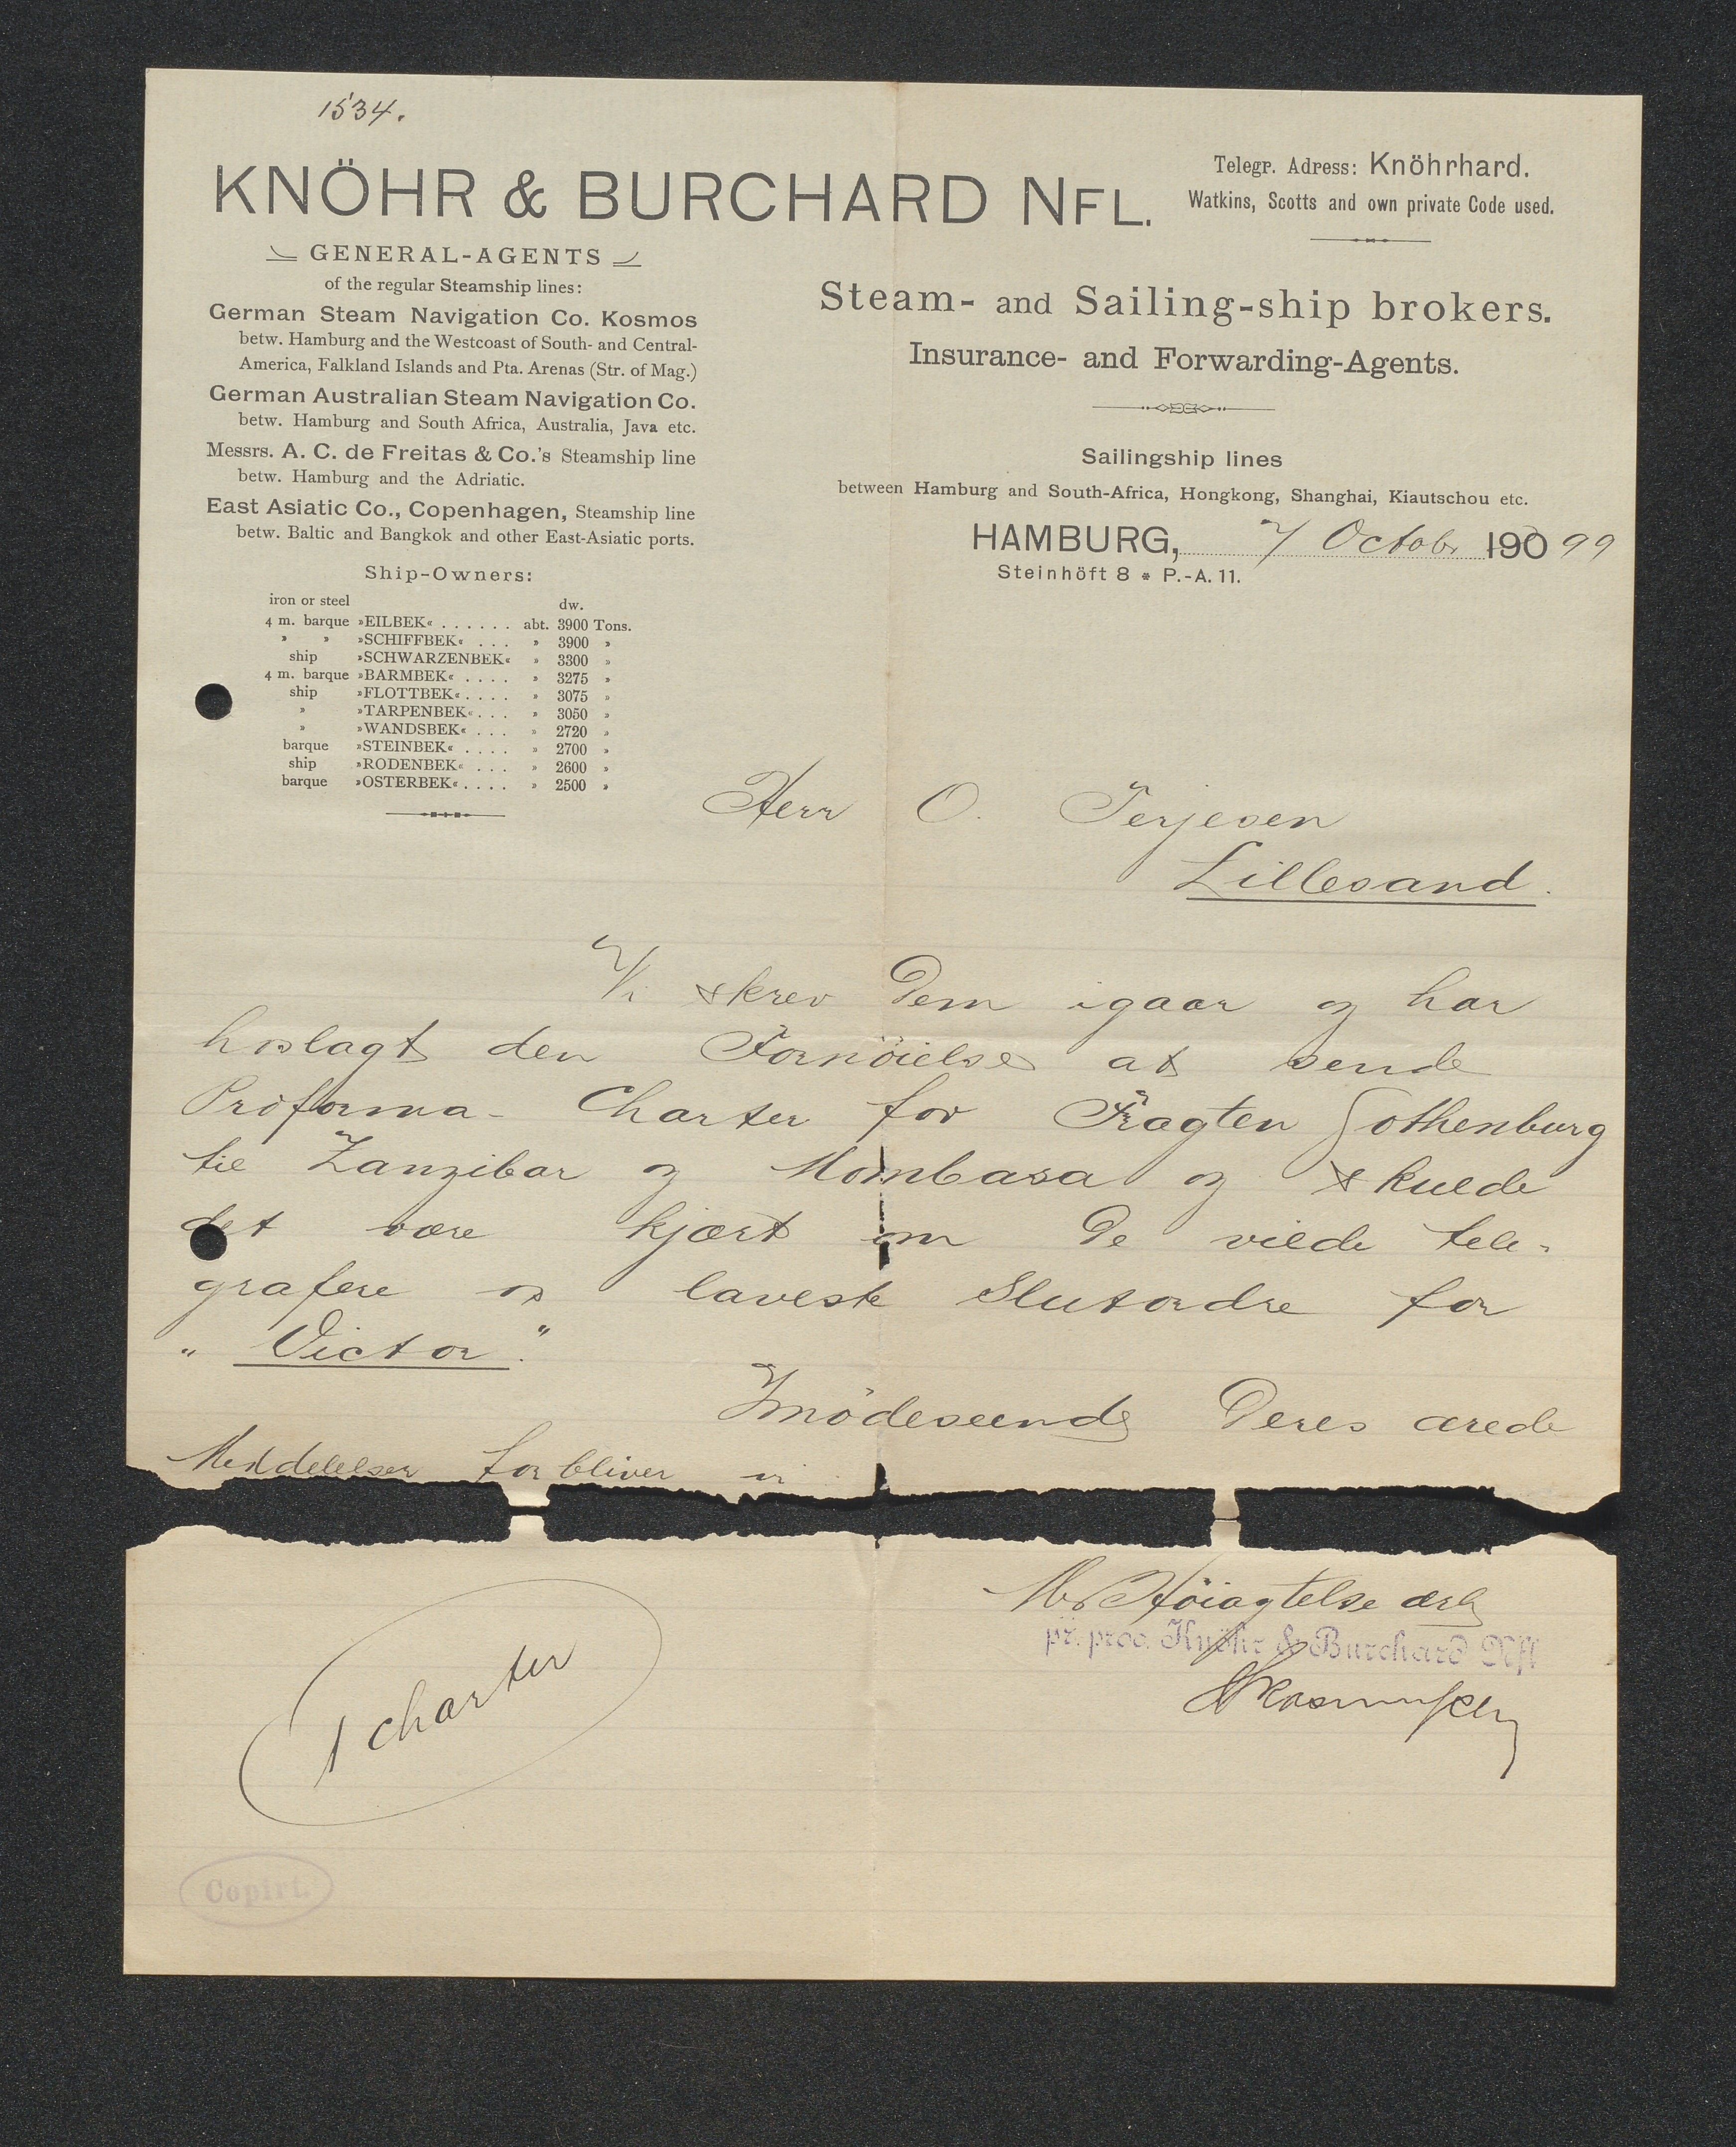 1534.
KNÖHR & BURCHARD NFL.
Telegr. Adress: Knöhrhard.
Watkins, Scotts and own private Code used.
GENERAL-AGENTS
of the regular Steamship lines:
German Steam Navigation Co. Kosmos
betw. Hamburg and the Westcoast of South- and Central-
America, Falkland Islands and Pta. Arenas (Str. of Mag.)
German Australian Steam Navigation Co.
betw. Hamburg and South Africa, Australia, Java etc.
Messrs. A. C. de Freitas & Co.'s Steamship line
betw. Hamburg and the Adriatic.
East Asiatic Co., Copenhagen, Steamship line
betw. Baltic and Bangkok and other East-Asiatic ports.
Ship-Owners:
iron or steel dw.
4 m. barque »EILBEK« . . . . . . abt. 3900 Tons.
» » »SCHIFFBEK« . . . » 3900 »
ship »SCHWARZENBEK« » 3300 »
4 m. barque »BARMBEK« . . . . » 3275 »
ship »FLOTTBEK« . . . . » 3075 »
» »TARPENBEK« . . . » 3050 »
» »WANDSBEK« . . . » 2720 »
barque »STEINBEK« . . . . » 2700 »
ship »RODENBEK« . . . » 2600 »
barque »OSTERBEK« . . . . » 2500 »
Steam- and Sailing-ship brokers.
Insurance- and Forwarding-Agents.
Sailingship lines
between Hamburg and South-Africa, Hongkong, Shanghai, Kiautschou etc.
HAMBURG, 7 Octobr 190 99
Steinhöft 8 * P.-A. 11.
Herr O. Terjesen
Lillesand.
Vi skrev Dem igaar og har
hoslagt den Fornöielse at sende
Proforma- Charter for Fragten Gothenburg
til Zanzibar og Mombasa og skulde
det være kjært om De vilde tele-
grafere os laveste Slutordre for
"Victor".
Imödeseende Deres ærede
Meddelelser forbliver vi
Med Höiagtelse
pr. proc. Knöhr & Burchard Nfl
1 charter
Copirt.